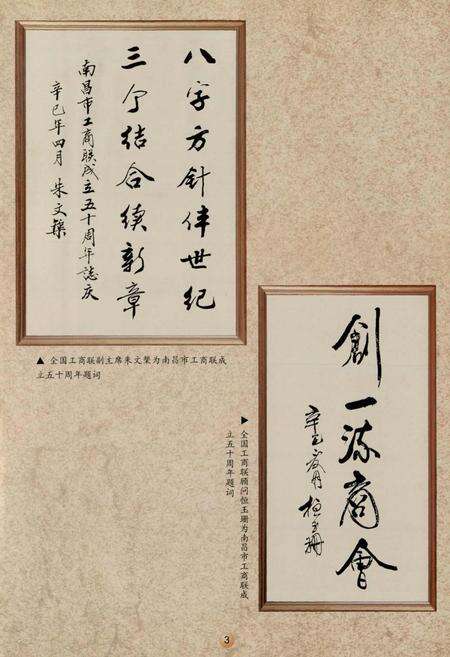 八字方针伴世纪
三个结合续新章
南昌市工商联成立五十周年誌庆
辛巳年四月 朱文榘
▲ 全国工商联副主席朱文榘为南昌市工商联成
立五十周年题词
創一流商會
辛巳岁月 恒玉珊
▶ 全国工商联顾问恒玉珊为南昌市工商联成
立五十周年题词
3